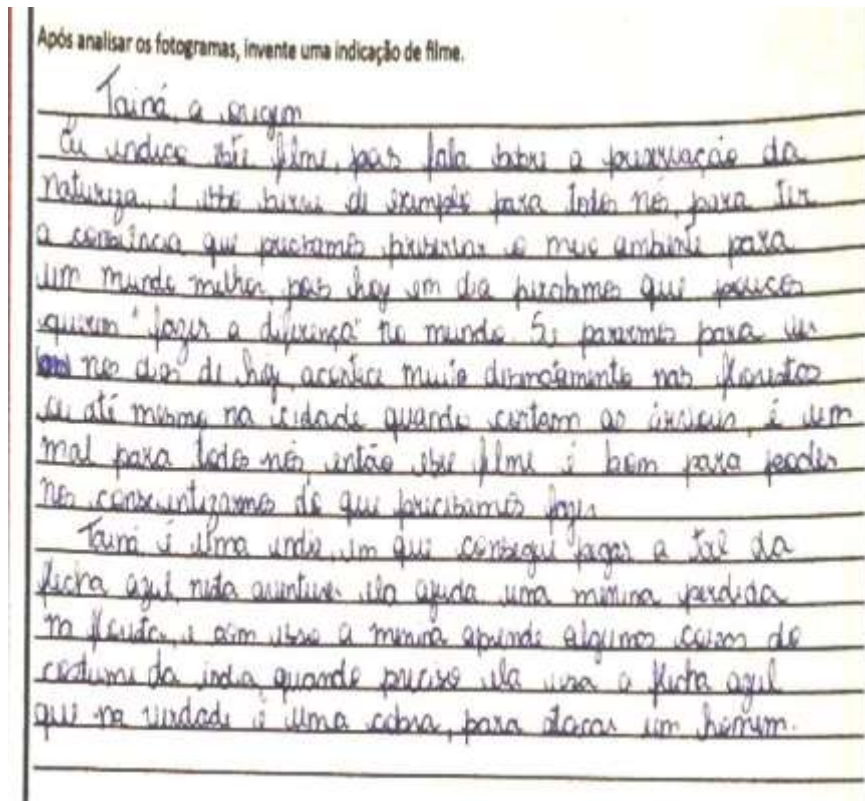 Após analisar os fotogramas, invente uma indicação de filme.
Tainá, a origem
Eu indico este filme, pois fala sobre a preservação da
natureza, e isso serve de exemplo para todos nós, para ter
a consiência que precisamos preservar o meio ambiente para
um mundo melhor, pois hoj em dia percebemos que poucos
querem "fazer a diferença" no mundo. Se pararmos para ver
nos dias de hoj, acontece muito desmatamento nas florestas
ou até mesmo na cidade quando cortam as árvores, é um
mal para todos nós então esse filme é bom para poder
nos conscientizarmos do que precisamos fazer
Tainá é uma india, em que consegue pegar a tal da
flecha azul, nesta aventura ela ajuda uma menina perdida
na floresta, e com isso a menina aprende algumas coisas do
costume da india, quando preciso ela usa a flecha azul
que na verdade é uma cobra, para atacar um homem.